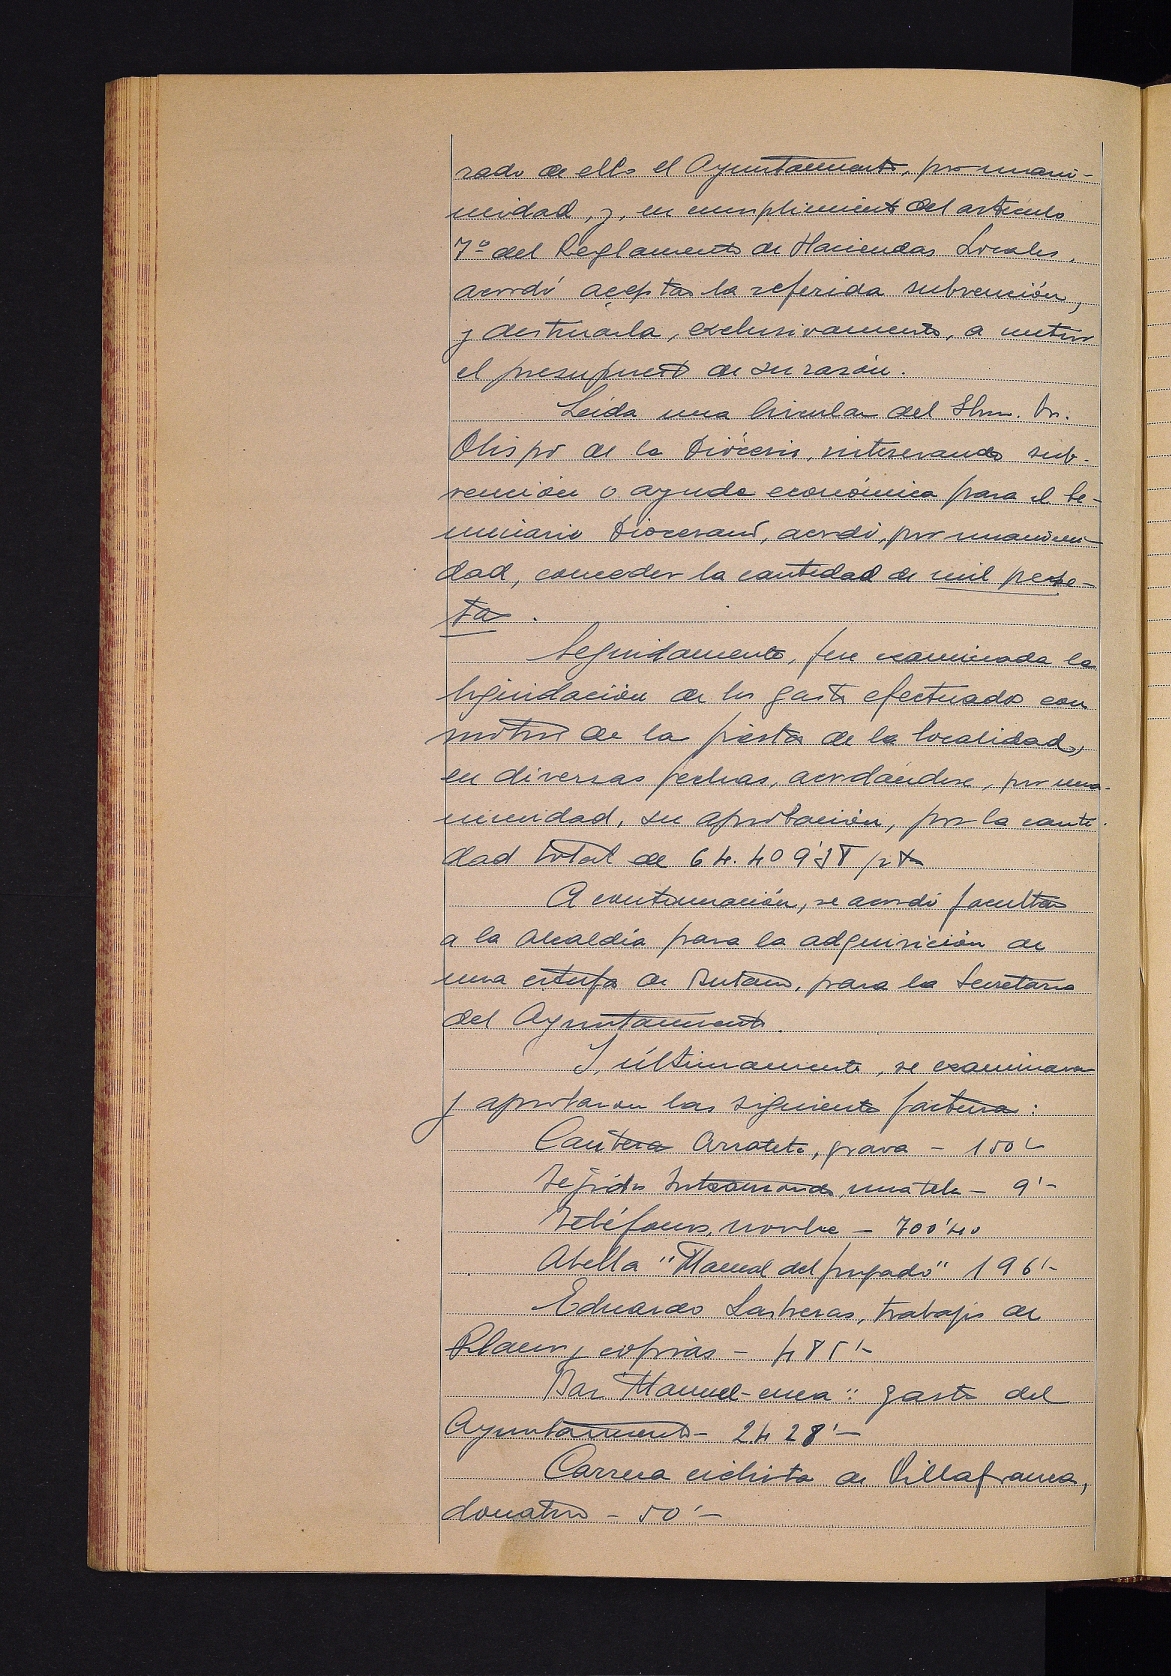 rado de ello el Ayuntamiento, por unani-
midad, y, en cumplimiento del artículo
7º del Reglamento de Haciendas Locales,
acordó aceptar la referida subvención,
y destinarla, exclusivamente, a nutrir
el presupuesto de su razón.
Leída una Circular del Ilmo. Sr.
Obispo de la Diócesis, interesando sub-
vención o ayuda económica para el Se-
minario Diocesano, acordó, por unanimi-
dad, conceder la cantidad de mil pese-
tas.
Seguidamente, fue examinada la
liquidación de los gastos efectuados con
motivo de la fiestas de la localidad,
en diversas fechas, acordándose, por una-
nimidad, su aprobación, por la canti-
dad total de 64.409' pts
A continuación, se acordó facultar
a la Alcaldía para la adquisición de
una estufa de Butano, para la Secretaría
del Ayuntamiento.
Y, últimamente, se examinaron
y aprobaron las siguientes facturas:
Cantera Arrateta, grava - 150'-
Tejidos una tela - 9'-
Teléfonos, novbre - 700'40
Abella "Manual del Juzgado" 196'-
Eduardo Lasheras, trabajos de
y copias - 485'-
Bar "Manuel-enea": gastos del
Ayuntamiento - 2428'-
Carrera ciclista de Villafranca,
donativo - 50'-